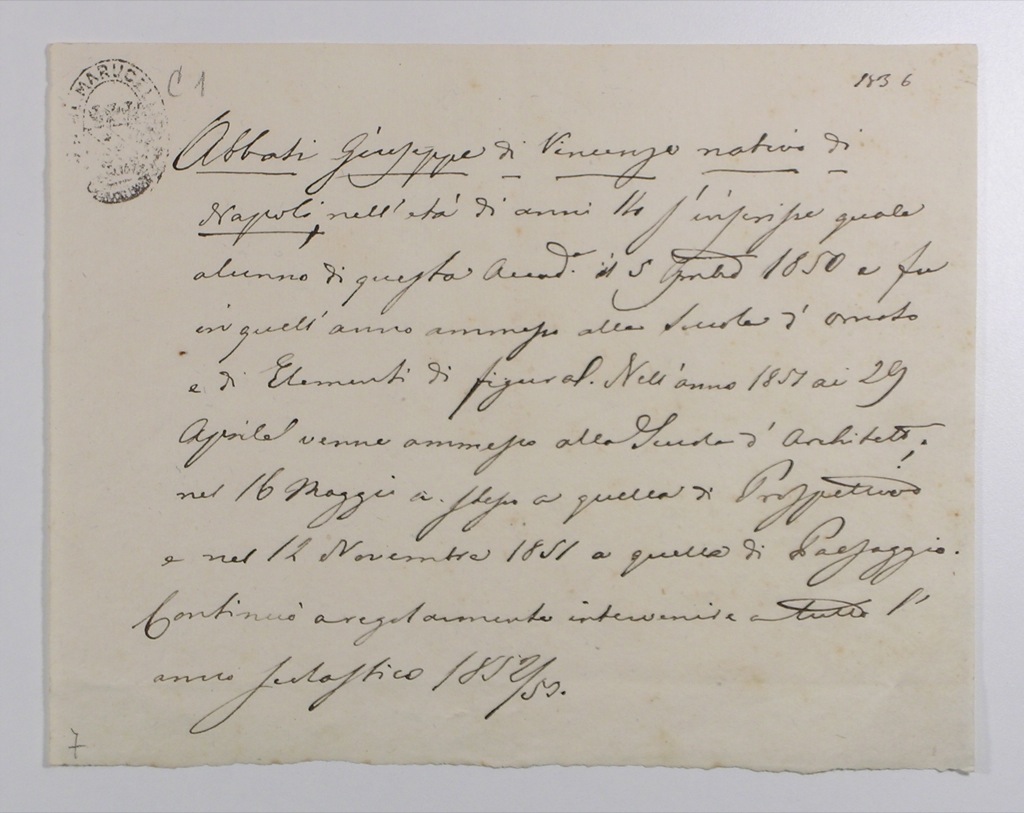 MARUCEL
C 1
1836
Abbati Giuseppe di Vincenzo nativo di
Napoli, nell'età di anni 14 s'inscrisse quale
alunno di questa Accad.a il 5 1850 e fu
in quell'anno ammesso alla Scuola d'ornato
e di Elementi di figura. Nell'anno 1851 ai 29
Aprile venne ammesso alla Scuola d'Architett.a,
nel 16 Maggio a. stesso a quella di Prospettiva
e nel 12 Novembre 1851 a quella di Paesaggio.
Continuò a regolarmente intervenire a tutto l'
anno scolastico 1852/53.
7